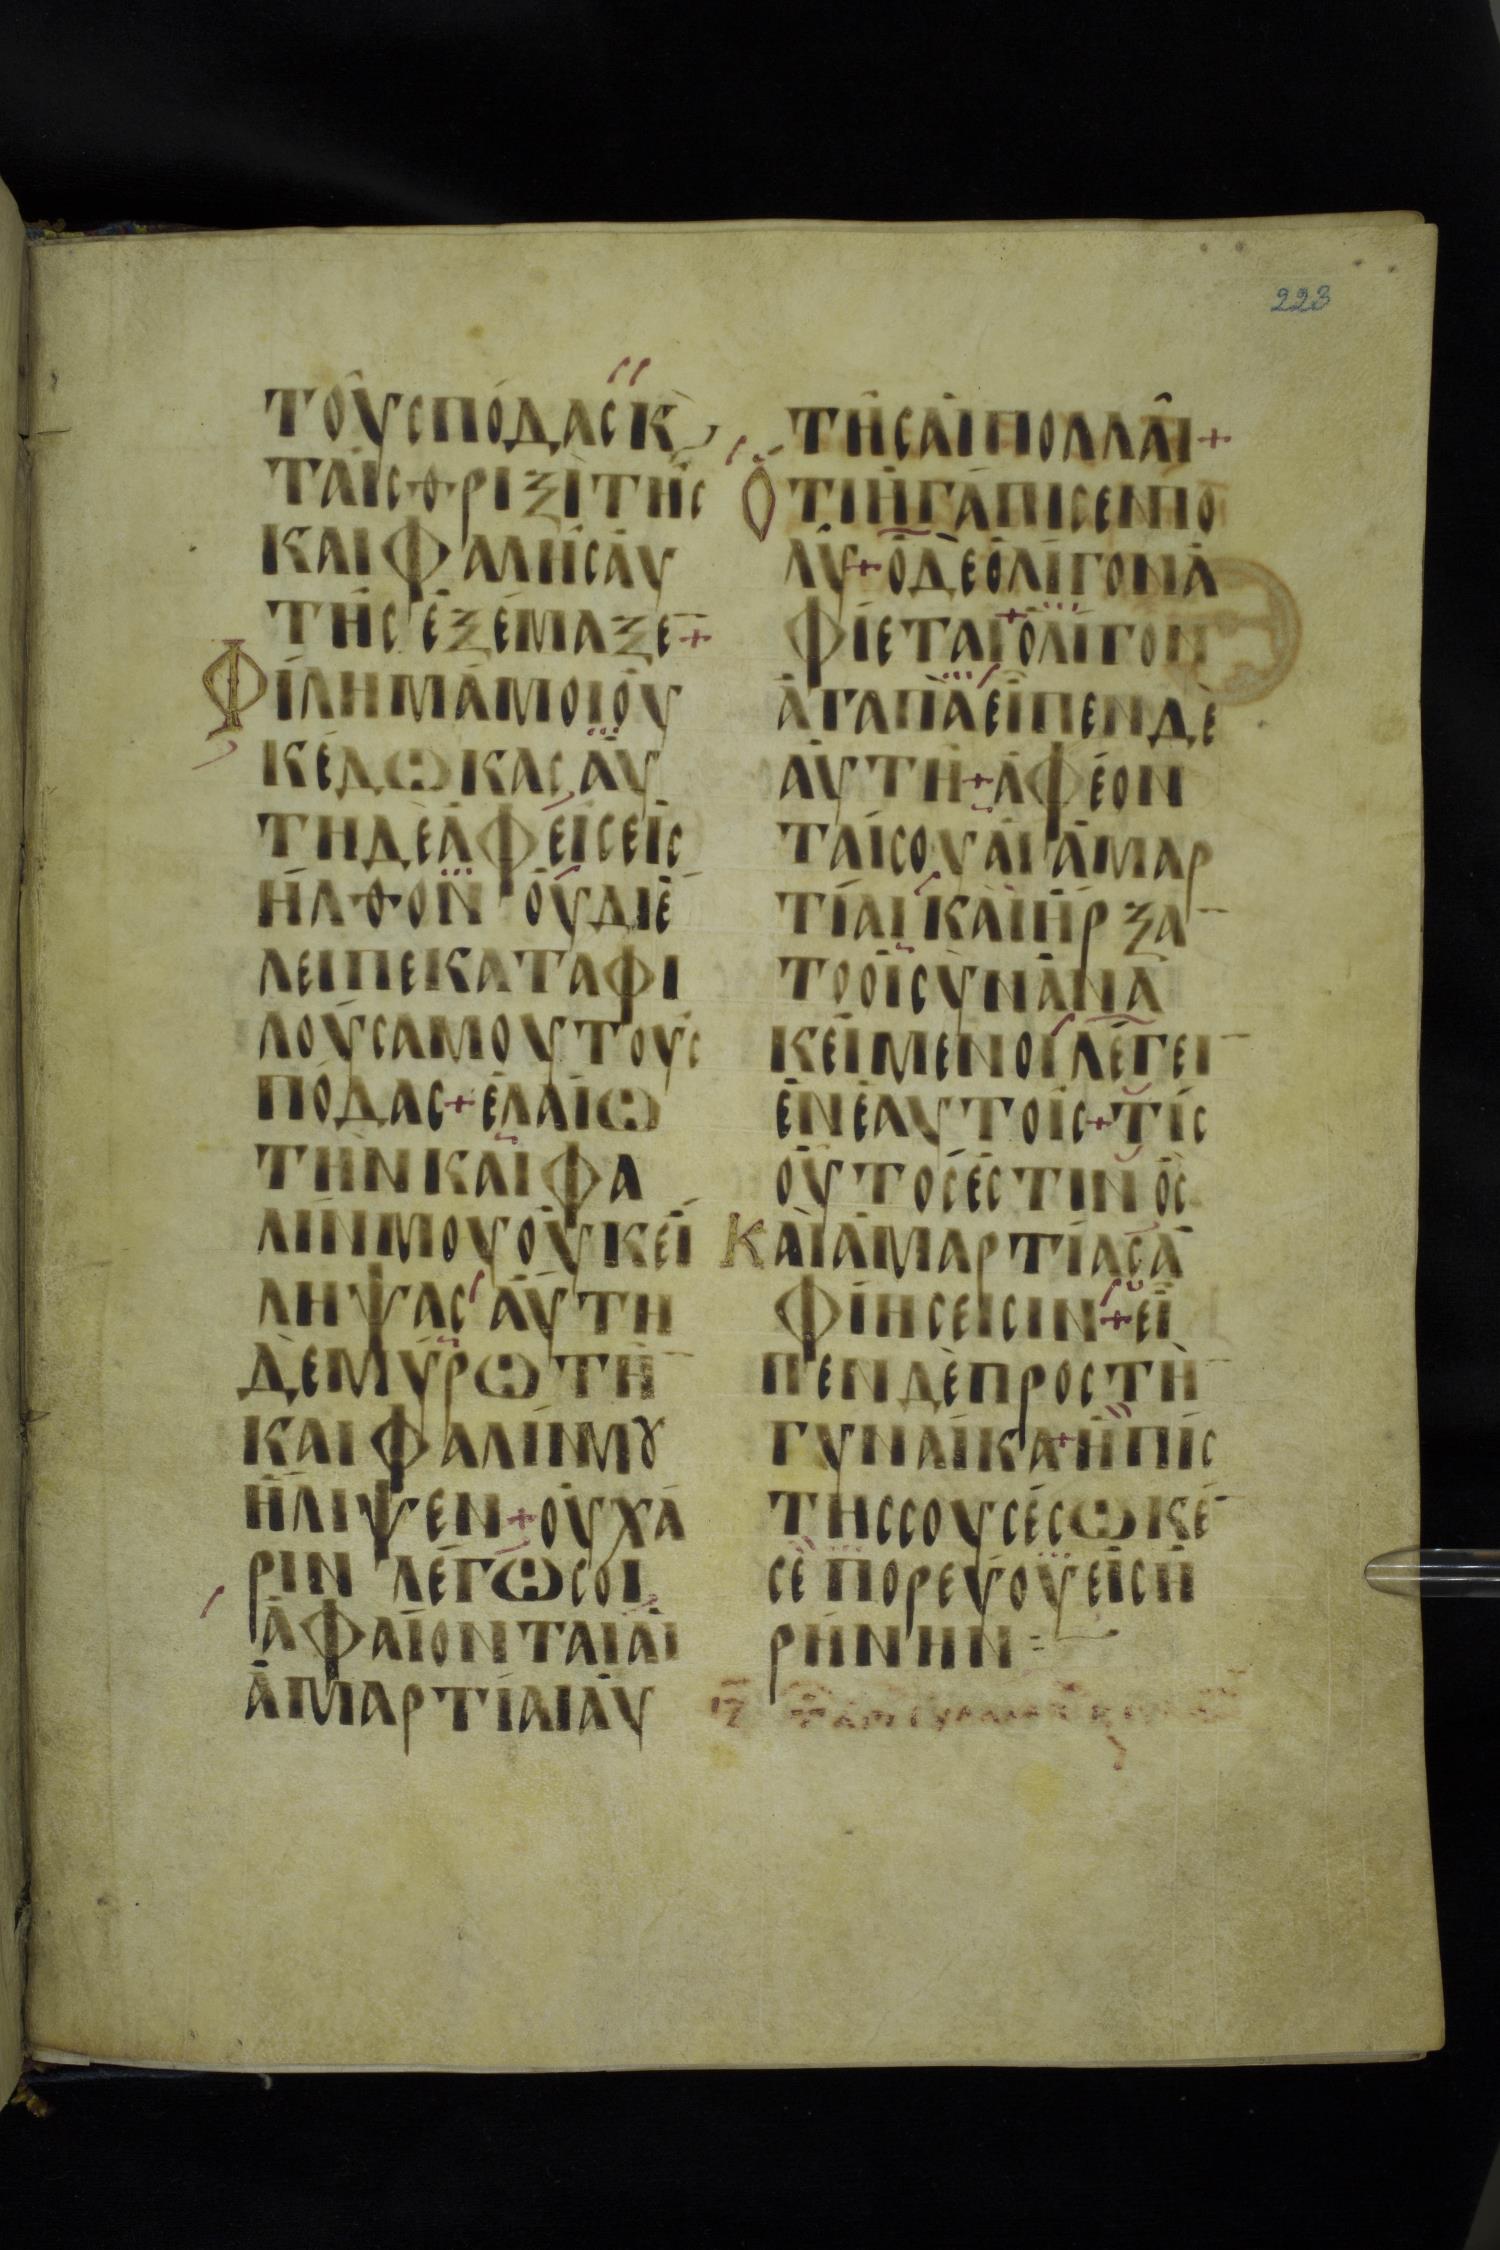 223
ΤΟῪΣ ΠΌΔΑΣ Κ
ΤΑΙ͂Σ ΘΡΙΞῚ ΤΗ͂Σ
ΚΑΙΦΑΛΗ͂Σ ΑΥ̓
ΤΗ͂Σ ἘΞΈΜΑΞΕ+
ΦΊΛΗΜΆ ΜΟΙ ΟΥ̓
Κ ἜΔΩΚΑΣ ΑὝ
ΤΗ ΔῈ ἈΦ ΕΙΣ ΕΙΣ
ΗΛΘΟΝ ΟΥ̓ ΔΙΕ
ΛΕΙΠΕ ΚΑΤΑΦΙ
ΛΟΥΣΑ ΜΟΥ ΤΟΥΣ
ΠΌΔΑΣ+ ἘΛΑΊΩ
ΤῊΝ ΚΑΙΦΑ
ΛΙΝ ΜΟΥ ΟΥ̓Κ ΕΙ
ΛΗΨΑΣ ΑὝΤΗ
ΔῈ ΜΎΡΩ ΤῊ
ΚΑΙΦΑΛΙΝ ΜΟΥ
ΗΛΙΨΕΝ+ ΟΥ̓ ΧΆ
ΡΙΝ ΛΈΓΩ ΣΟΙ
ἈΦΑΙΟΝΤΑΙ ΑἹ
ἉΜΑΡΤΊΑΙ ΑΥ̓
ΤΗ͂Σ ΑἹ ΠΟΛΛΑΙ+
ὍΤΙ ἨΓΆΠΙΣΕΝ ΠΟ
ΛΎ+ Ὁ ΔῈ ὈΛΊΓΟΝ Ἀ
ΦΊΕΤΑΙ+ ὈΛΊΓΟΝ
ἈΓΑΠΑ ΕἸΠΕΝ ΔῈ
ΑΥ̓ΤΗ+ ἈΦΈΟΝ
ΤΑΙ ΣΟΥ ΑἹ ἉΜΑΡ
ΤΊΑΙ ΚΑῚ ἬΡΞΑ
ΤΟ ΟἹ ΣΥΝΑΝΑ
ΚΕΙΜΕΝΟΙ ΛΈΓΕΙ
ἘΝ ἙΑΥΤΟΙΣ+ ΤΊΣ
ΟΥΤΟΣ ἘΣΤΙΝ ὋΣ
ΚΑῚ ἉΜΑΡΤΊΑΣ Ἀ
ΦΊΗΣΕΙΣΙΝ+ ΕἸ
ΠΕΝ ΔῈ ΠΡΟΣ ΤῊ
ΓΥΝΑΙΚΑ+ Ἡ ΠΊΣ
ΤΗΣ ΣΟΥ ΣΈΣΩΚΕ
ΣΕ ΠΟΡΕΥΟΥ ΕἸΣ Η
ΡΉΝΗΝ